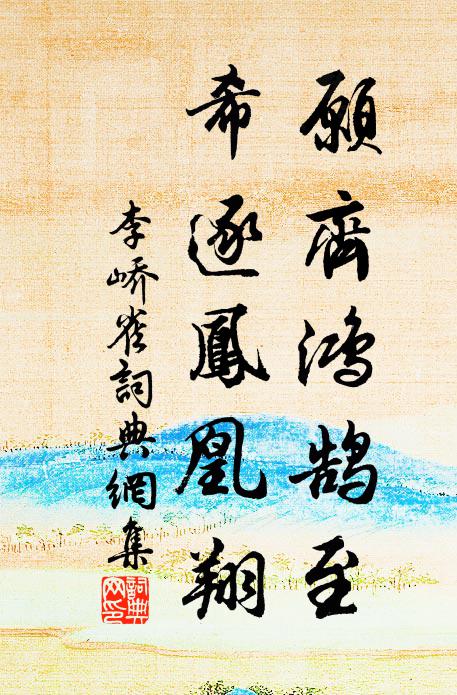 願齊鴻鵠至
希逐鳳凰翔
李嶠雀詞典網集
詞典